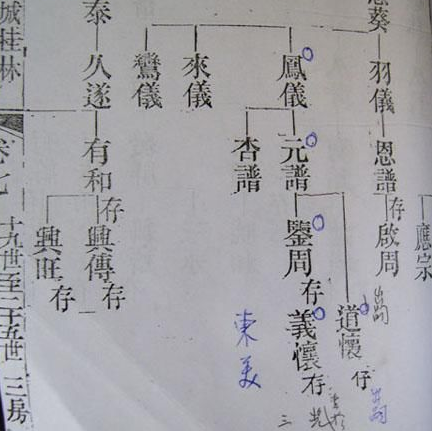 應宗
葵
羽儀
恩譜
存
啟周
出嗣
鳳儀
元譜
鑒周
存
義懷
存
道懷
仔
出嗣
三
杏譜
來儀
鸞儀
東美
泰
遂
有和
存
興傳
存
興旺
存
城桂林
卷七
十九世至二十五世 三房